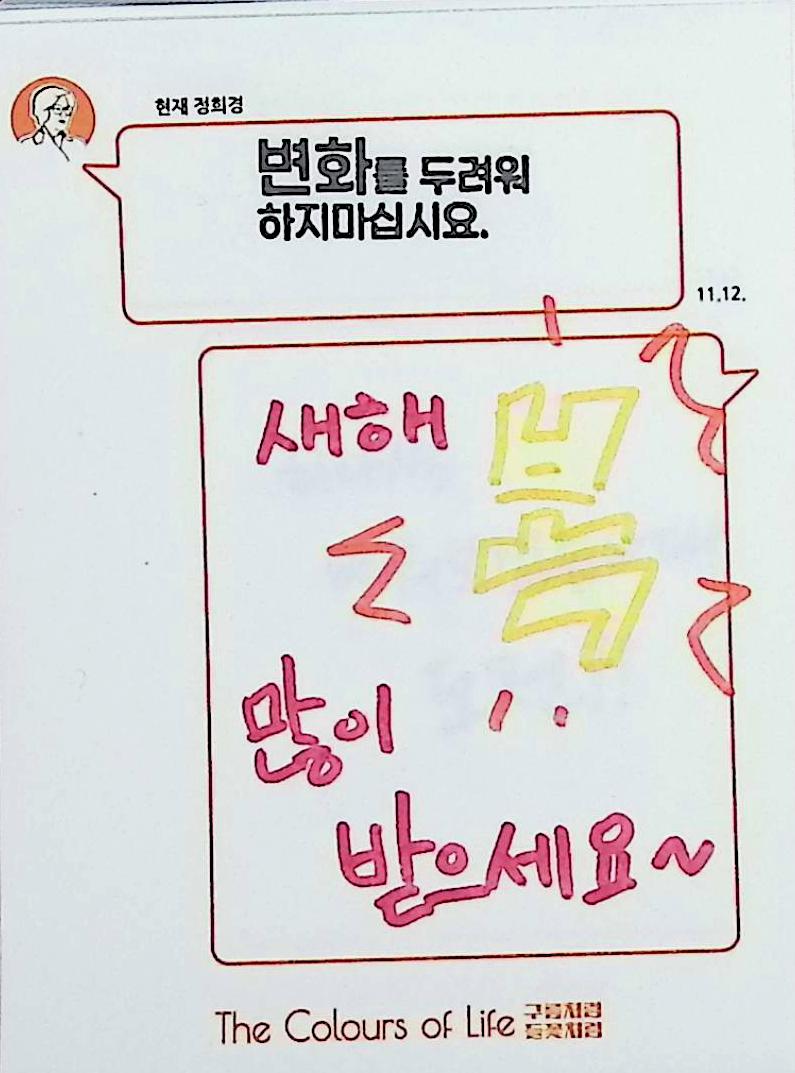 현재 정희경
변화를 두려워
하지마십시요.
11.12.
새해 복
많이
받으세요~
The Colours of Life 구름처럼
들꽃처럼